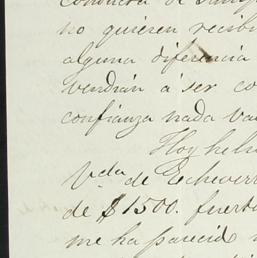 conducta de
no quieren recibi
alguna diferencia
vendrán á ser co
confianza nada va
Hoy he
V.da de Echeverr
de $1500. fuert
me ha parecid